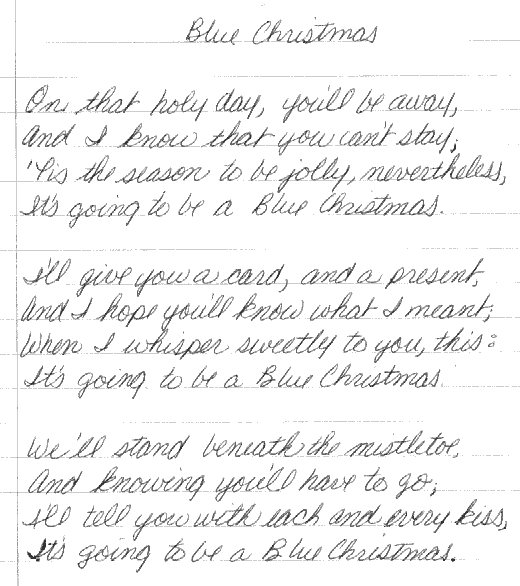 Blue Christmas
On that holy day, you'll be away,
And I know that you can't stay;
'Tis the season to be jolly, nevertheless,
It's going to be a Blue Christmas.
I'll give you a card, and a present,
And I hope you'll know what I meant;
When I whisper sweetly to you, this:
It's going to be a Blue Christmas.
We'll stand beneath the mistletoe,
And knowing you'll have to go;
I'll tell you with each and every kiss,
It's going to be a Blue Christmas.